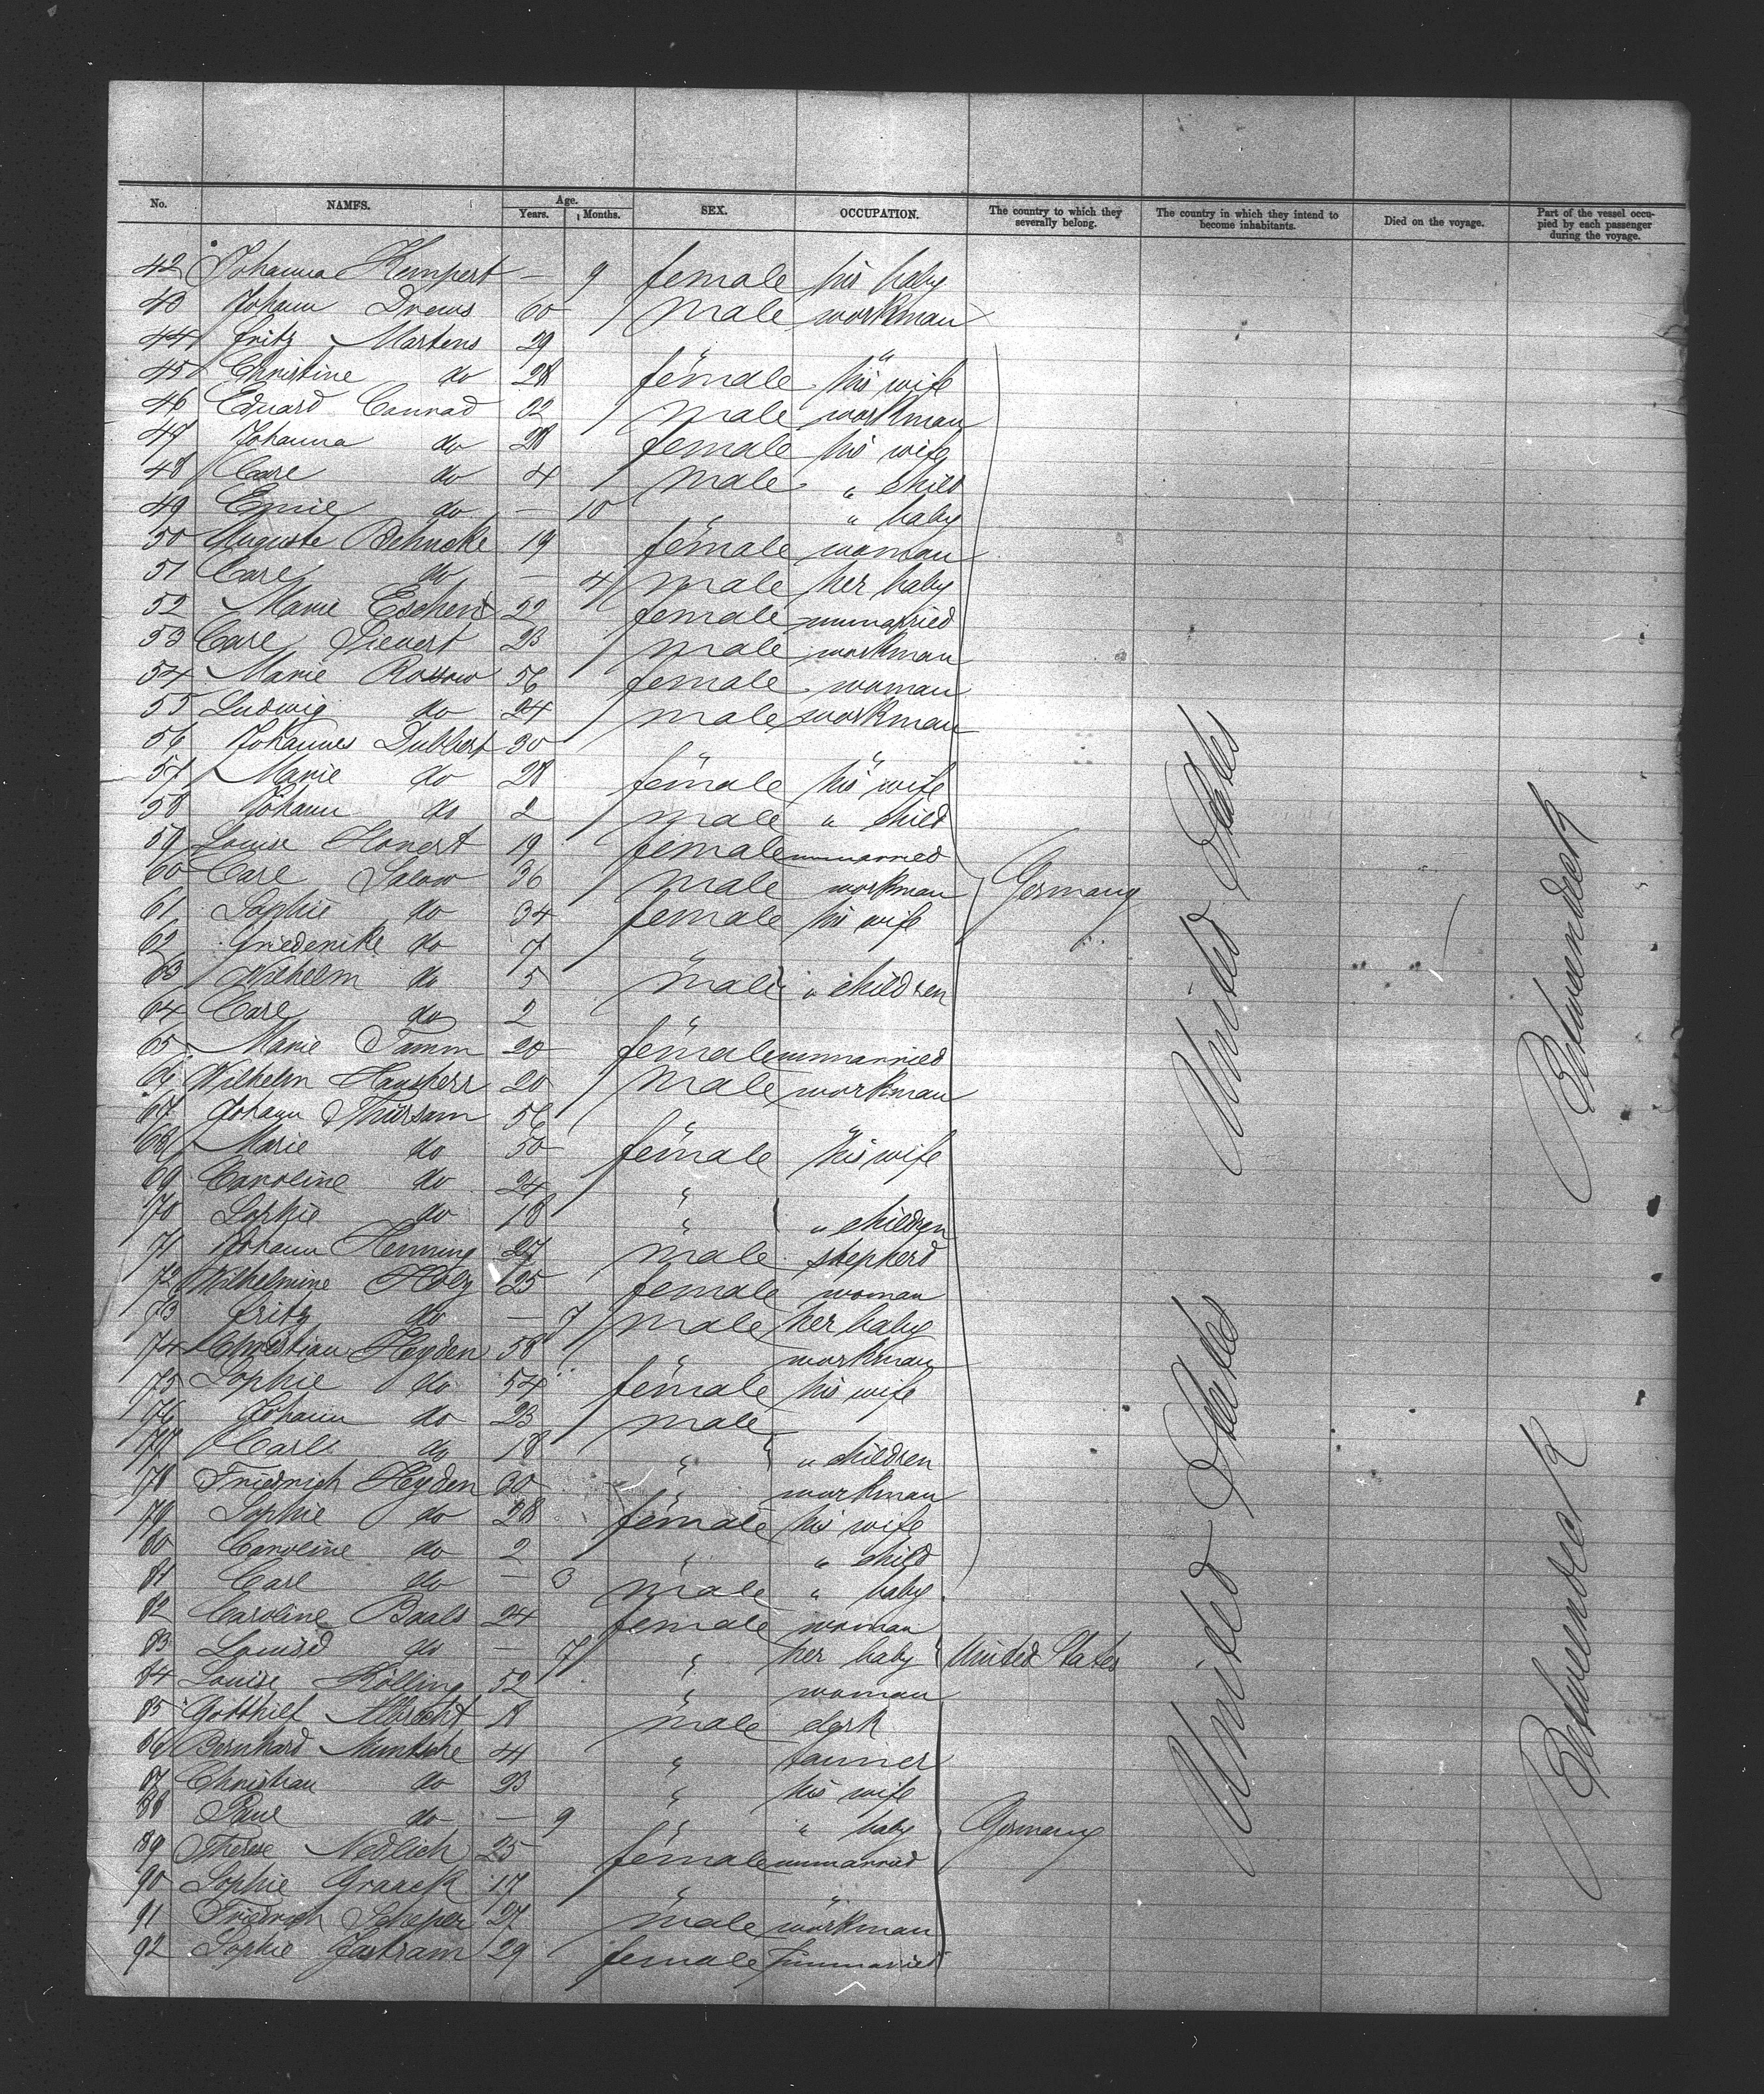 No. NAMES. Age. Years. Months. SEX. OCCUPATION. The country to which they severally belong. The country in which they intend to become inhabitants. Died on the voyage. Part of the vessel occupied by each passenger during the voyage.
42 Johanna Kempert — 9 female his baby
43 Johann Drews 60 male workman
44 Fritz Martens 29 " "
45 Christine do 28 female his wife
46 Eduard Conrad 32 male workman
47 Johanna do 28 female his wife
48 Carl do 4 male " child
49 Emil do — 10 " " baby
50 Auguste Behncke 19 female woman
51 Carl do — 4 male her baby
52 Marie 22 female unmarried
53 Carl Sievert 23 male workman
54 Marie Rossow 56 female woman
55 Ludwig do 24 male workman
56 Johannes Dubbert 30 " "
57 Marie do 28 female his wife
58 Johann do 2 male " child
59 Louise 19 female unmarried
60 Carl Salow 36 male workman Germany
61 Sophie do 34 female his wife
62 Friederike do 7 "
63 Wilhelm do 5 male " children
64 Carl do 2 "
65 Marie Tamm 20 female unmarried
66 Wilhelm 20 male workman
67 Johann 56 " "
68 Marie do 50 female his wife
69 Caroline do 24 "
70 Sophie do 18 " " children
71 Johann Henning 27 male shepherd
72 Wilhelmine 25 female woman
73 Fritz do — 7 male her baby
74 Christian Heyden 58 " workman
75 Sophie do 54 female his wife
76 Johann do 23 male
77 Carl do 18 " " children
78 Friedrich Heyden 30 " workman
79 Sophie do 28 female his wife
80 Caroline do 2 " " child
81 Carl do — 3 male " baby
82 Caroline Baals 24 female woman
83 do — 7 " her baby United States
84 Louise Rölling 52 " woman
85 Gotthilf Albrecht 18 male clerk
86 Bernhard " 
87 Christian do 23 " his wife
88 Paul do — 9 " " baby Germany
89 Therese Nedlich 25 female unmarried
90 Sophie Graack 17 " "
91 Friedrich Scheper 27 male workman
92 Sophie Jastram 29 female unmarried
United States
United States
Betweendeck
Betweendeck